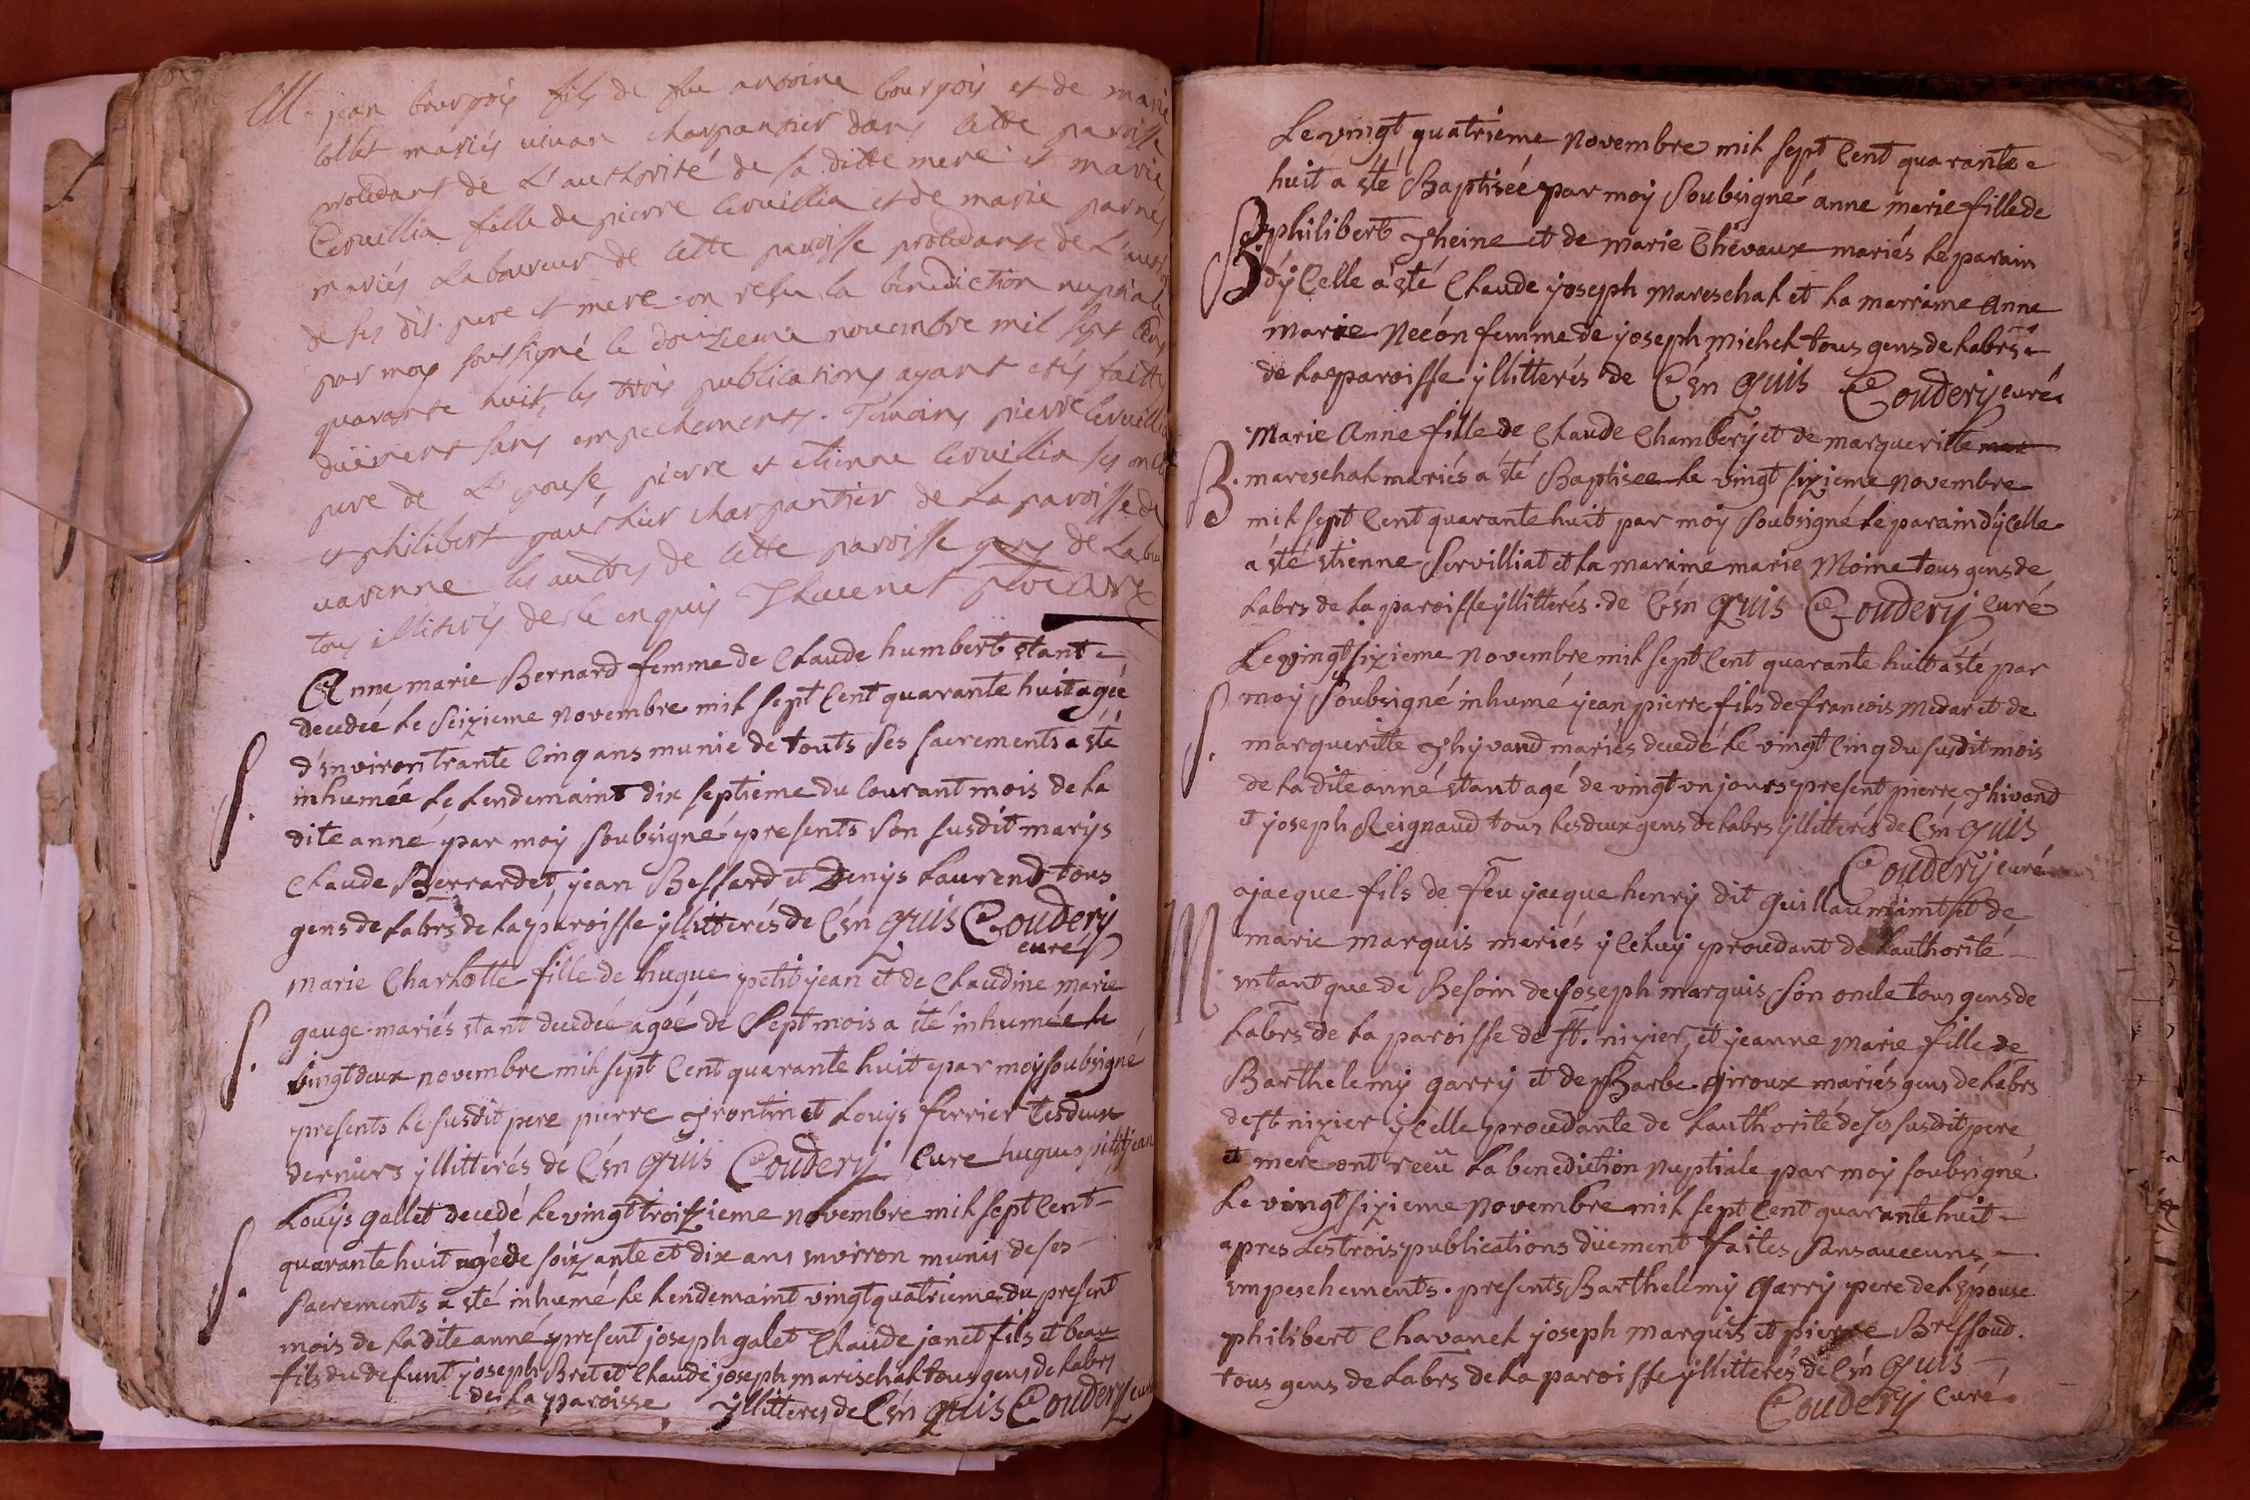 M. jean bourgois fils de feu antoine bourgois et de marie
collet mariés vivan charpantier dans cette paroisse
procedant de L'authorité de sa ditte mere et marie
Cervillia fille de pierre Cervillia et de marie
mariés Laboureur de cette paroisse procedante de L'autho
de ses dit. pere et mere on resu la benediction nuptiale
par moy soussigné le douzieme novembre mil sept cens
quarante huit, les trois publications ayant etés faitte
düement sans empechements. Temoins pierre Cervillia
pere de L'epouse, pierre et etienne Cervillia ses oncl
et philibert gauthier charpantier de la paroisse de
varenne les autres de cette paroisse gens de Labeu
tous illiterés de ce enquis Thevenet
Anne marie Bernard femme de Claude humbert étant
decedée le seizieme novembre mil sept cent quarante huit agée
d'environ trante cinq ans munie de touts ses sacrements a été
S. inhumée le lendemaint dix septieme du courant mois de la
dite anné par moy soubsigné presents son susdit marys
Claude Bernardet, jean Bessard et Denys Laurend tous
gens de Labrs de la paroisse yllitterés de Cén quis Coudery
curé
marie Charlotte fille de hugue petitjean et de Claudine marie
S. gauge mariés étant decedée agée de sept mois a été inhumée le
vingt deux novembre mil sept cent quarante huit par moy soubsigné
presents le susdit pere pierre frontin et Louys ferrier les deux
derniers yllitterés de Cén quis Coudery Cure hugues petitjean
Louys gallet decedé le vingt troizieme novembre mil sept cent
quarante huit agé de soixante et dix ans environ munis de ses
S. sacrements a été inhumé le lendemaint vingt quatrieme du present
mois de la dite anné present joseph galet Claude janet fils et beau
fils du defunt joseph Bret et Claude joseph mareschal tous gens de labrs
de la paroisse yllitterés de Cén quis Coudery curé
Le vingt quatrieme novembre mil sept cent quarante
huit a été Baptisée par moy soubsigné anne marie fille de
B. philibert Theine et de marie Chevaux mariés le parain
d'ycelle a été Claude yoseph mareschal et la marraine anne
marie Neeon femme de yoseph michel tous gens de Labrs
de la paroisse yllitterés de Cén quis Coudery curé
Marie Anne fille de Claude Chambery et de margueritte mar
B. mareschal mariés a été Baptisee le vingt sixieme novembre
mil sept cent quarante huit par moy soubsigné le parain dycelle
a été étienne Servilliat et la maraine marie Moine tous gens de
Labrs de la paroisse yllitterés de Cén quis Coudery Curé
Le vingt sixieme novembre mil sept cent quarante huit a été par
S. moy soubsigné inhumé yean pierre fils de francois medar et de
margueritte Thyvand mariés decedé le vingt cinq du susdit mois
de la dite anné étant agé de vingt un jours present pierre Thivand
et yoseph Reignaud tous les deux gens de Labrs yllitterés de Cén quis
Coudery curé
M yacque fils de feu yacque henry dit guillaumaint et de
marie marquis mariés yceluy procedant de Lauthorité
entant que de Besoin de yoseph marquis son oncle tous gens de
Labrs de la paroisse de St. nizier, et yeanne marie fille de
Barthelemy garry et de Barbe giroux mariés gens de Labrs
de st nizier ycelle procedante de Lauthorité de ses susdit pere
et mere ont reçu la benediction nuptiale par moy soubsigné
Le vingt sixieme novembre mil sept cent quarante huit
apres les trois publications düement faites sans aucuns
empeschements. presents Barthelemy garry pere de l'épouse
philibert Chavanel yoseph marquis et pierre Bressoud.
tous gens de Labrs de la paroisse yllitterés de Cén quis
Coudery Curé.